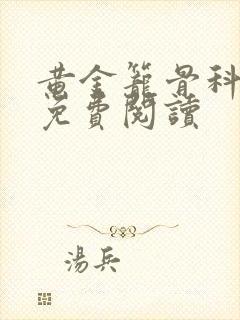 黄金籠骨科
免費閱讀
湯兵